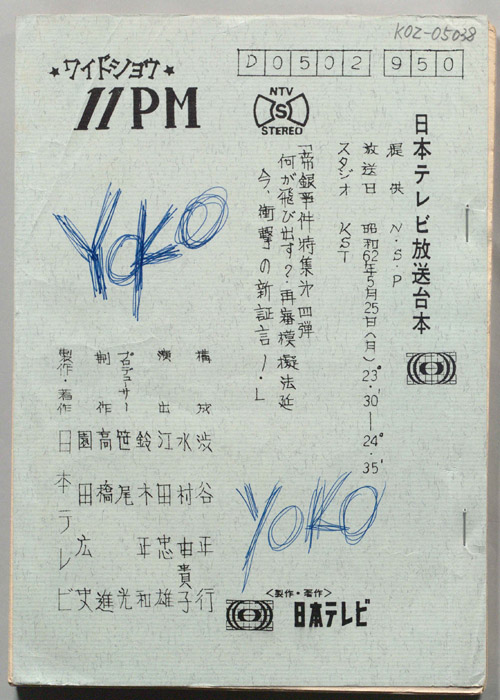 KOZ-05038
D0502 950
★ワイドショウ★
11PM
NTV
S
STEREO
日本テレビ放送台本
提供 N・S・P
放送日 昭和62年5月25日(月)23°・30'―24°・35'
スタジオ KST
「帝銀事件特集第四弾
何が飛び出す?・再審模擬法廷
今、衝撃の新証言!・」
YOKO
構成 渋谷正行
水村由貴子
演出 江田忠雄
鈴木正和
プロデューサー 笹尾光
制作 高橋進
園田広史
製作・著作 日本テレビ
YOKKO
<製作・著作>
日本テレビ